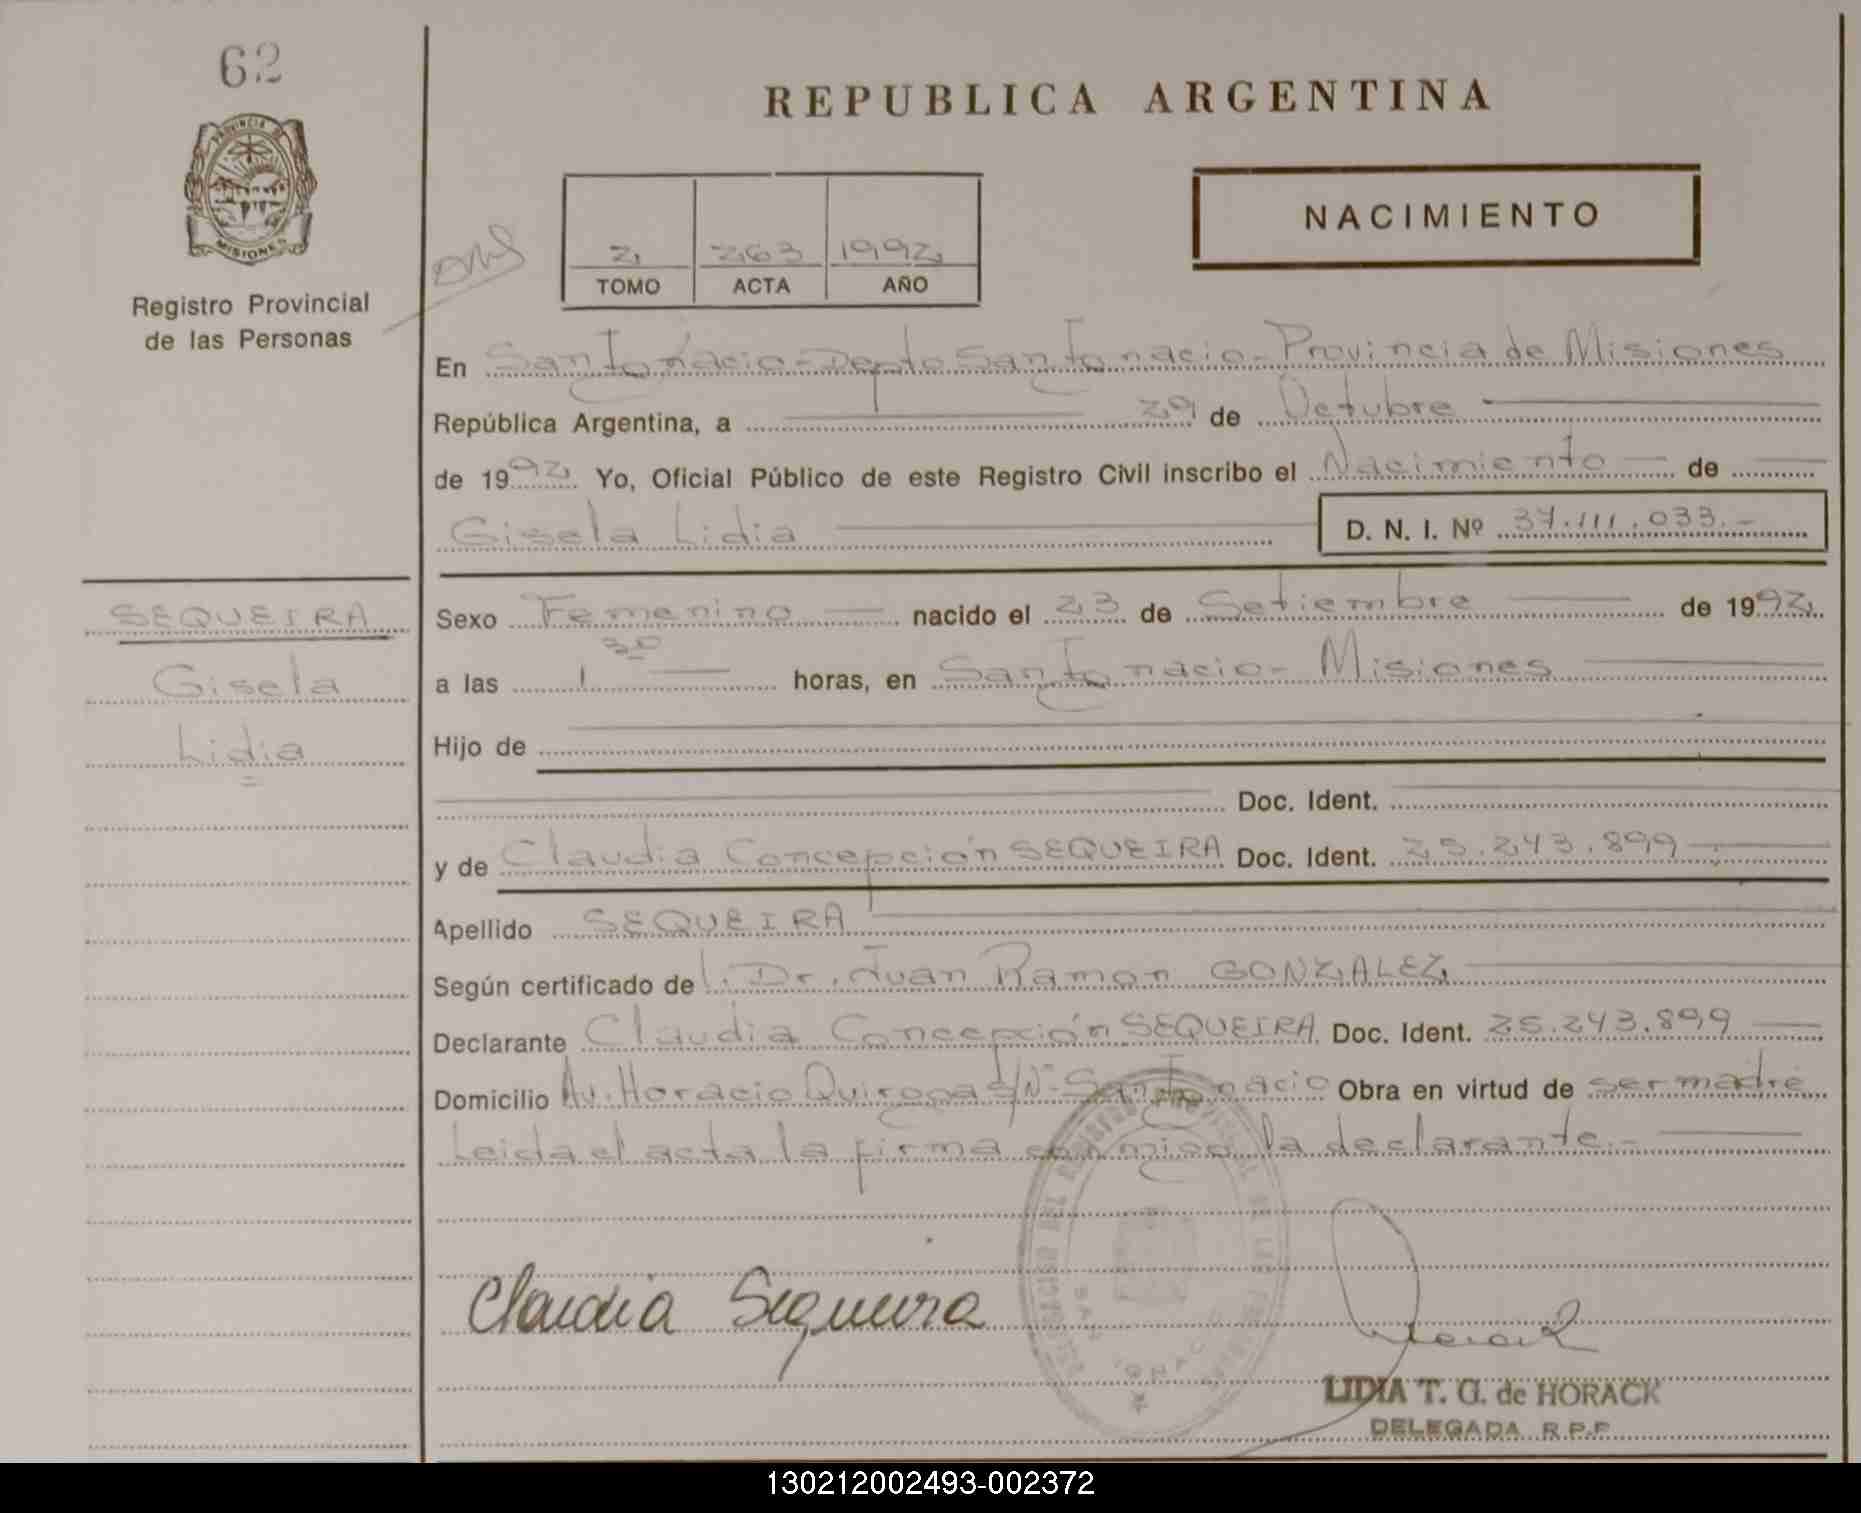 62
PROVINCIA DE
MISIONES
Registro Provincial
de las Personas
REPUBLICA ARGENTINA
2 263 1992
TOMO ACTA AÑO
NACIMIENTO
En San Ignacio - Depto San Ignacio - Provincia de Misiones
República Argentina, a 29 de Octubre
de 1992 Yo, Oficial Público de este Registro Civil inscribo el Nacimiento de
Gisela Lidia D. N. I. Nº 37.111.033.-
SEQUEIRA
Gisela
Lidia
Sexo Femenino nacido el 23 de Setiembre de 1992
a las 1 30 horas, en San Ignacio - Misiones
Hijo de
Doc. Ident.
y de Claudia Concepción SEQUEIRA Doc. Ident. 25.243.899
Apellido SEQUEIRA
Según certificado de l. Dr. Juan Ramon GONZALEZ
Declarante Claudia Concepción SEQUEIRA Doc. Ident. 25.243.899
Domicilio Av. Horacio Quiroga s/Nº - San Ignacio Obra en virtud de ser madre
Leida el acta la firma conmigo la declarante.-
Claudia Sequeira
LIDIA T. G. de HORACK
DELEGADA R.P.P.
130212002493-002372